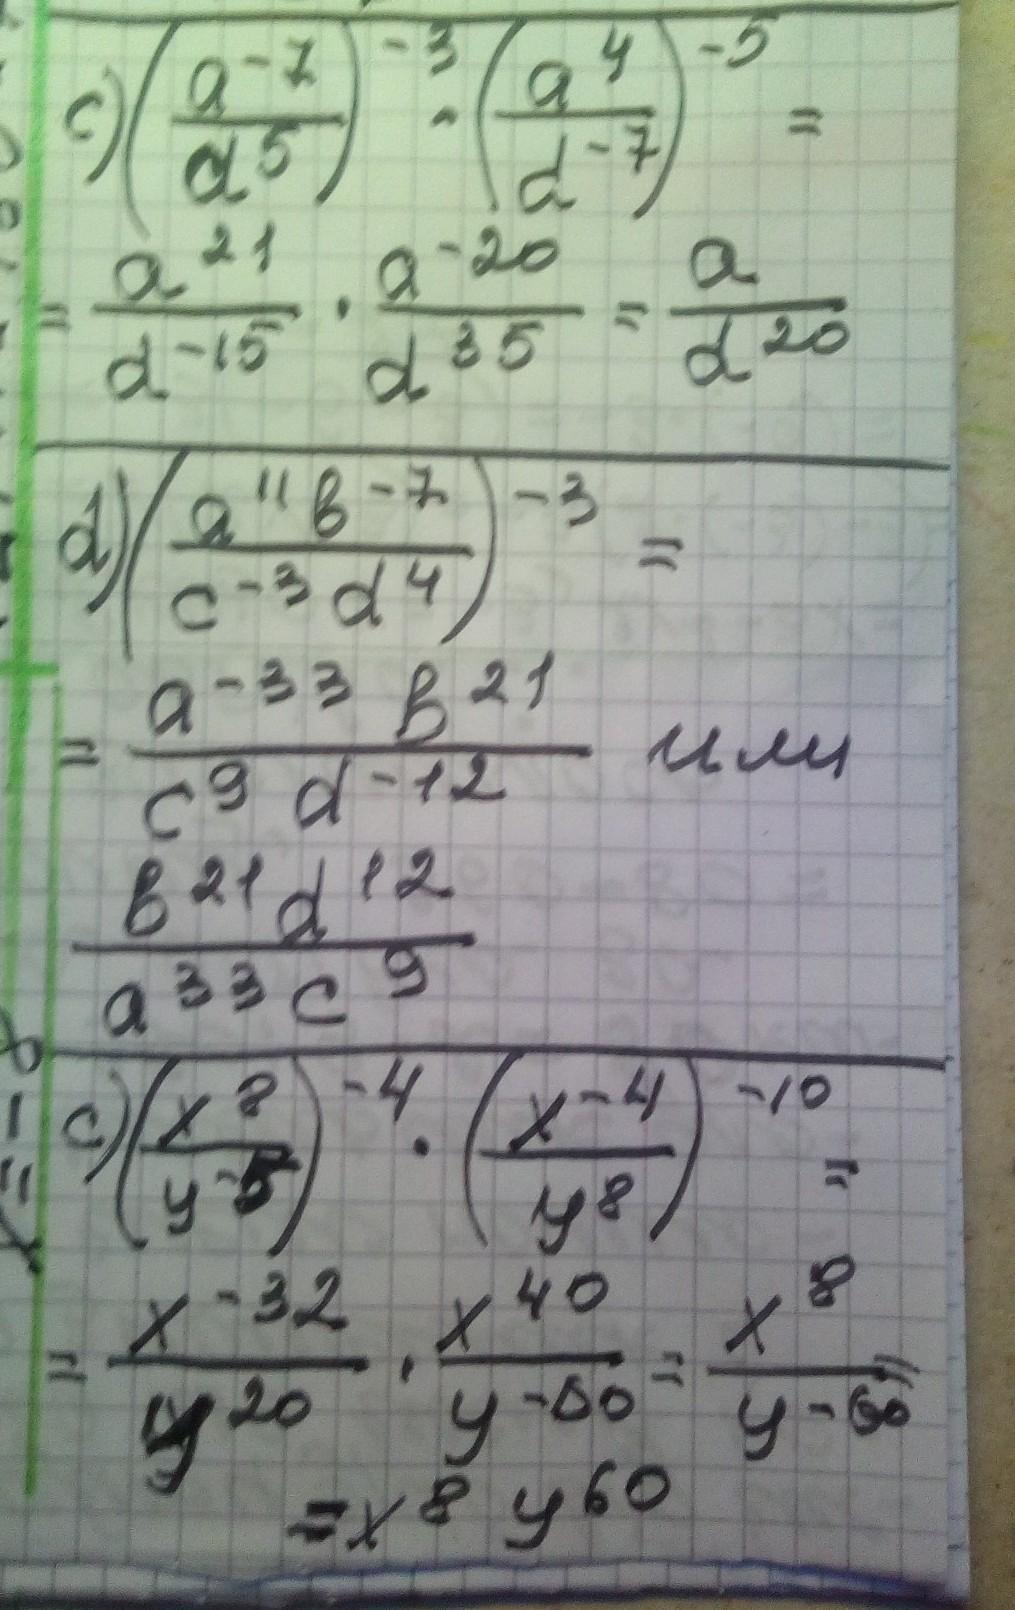 c) (a^-7 / d^5)^-3 · (a^4 / d^-7)^-5 =
= a^21 / d^-15 · a^-20 / d^35 = a / d^20
d) (a^11 b^-7 / c^-3 d^4)^-3 =
= a^-33 b^21 / c^9 d^-12 или
b^21 d^12 / a^33 c^9
c) (x^8 / y^-5)^-4 · (x^-4 / y^8)^-10 =
= x^-32 / y^20 · x^40 / y = x^8 / y =
= x^8 y^60